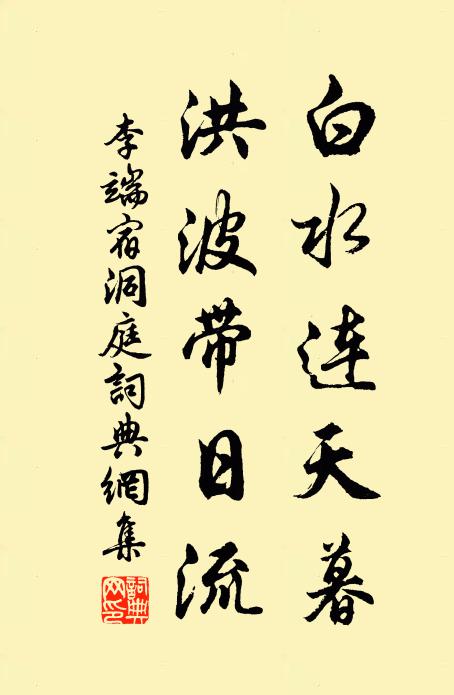 白水連天暮
洪波带日流
李端宿洞庭詞典網集
詞典网印